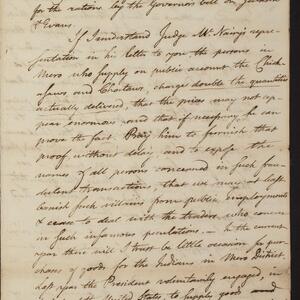 for the rations, by the Governors bill on Jackson
& Evans.
If I understand Judge McNairy's repre-
sentation in his letter to you the persons in
Mero who supply on public account the Chick-
asaws and Choctaws, charge double the quantities
actually delivered, that the prices may not ap-
pear enormous and that if necessary he can
prove the fact. Pray him to furnish that
proof without delay, and to expose the
names of all persons concerned in such frau-
dulent transactions, that we may
such villains from public employments
& cease to deal with the traders who concur
in such infamous peculations. — The current
year there will I trust be little occasion for pur-
chases of goods for the Indians in Mero District.
Last year the President voluntarily engaged, in
the United States to supply goods and